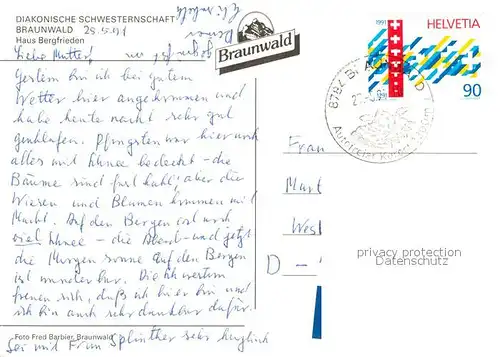 DIAKONISCHE SCHWESTERNSCHAFT
BRAUNWALD 29.5.91
Haus Bergfrieden
Liebe Mutter!
Gestern bin ich bei gutem
Wetter hier angekommen und
habe heute nacht sehr gut
geschlafen. Pfingsten war hier noch
alles mit Schnee bedeckt - die
Bäume sind fast kahl, aber die
Wiesen und Blumen kommen mit
Macht. Auf den Bergen ist noch
viel Schnee - die Abend- und jetzt
die Morgensonne auf den Bergen
ist wunderbar. Die Schwestern
freuen sich, daß ich hier bin und
ich bin auch sehr dankbar dafür.
Foto Fred Barbier, Braunwald
Sei mit Frau Splinther sehr herzlich
gegrüßt von
Braunwald
1991
HELVETIA
90
8784 BRAUNWALD
Autofreier Kurort
Frau
West
D -
privacy protection
Datenschutz